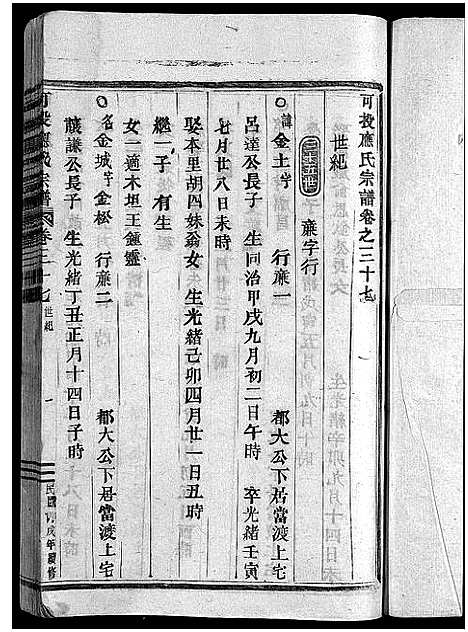 可投應氏宗譜卷之三十七
世紀
廉字行
諱金土字 行廉一 都大公下居當渡上宅
呂達公長子 生同治甲戌九月初二日午時 卒光緒壬寅
七月廿八日未時
娶本里胡四妹翁女 生光緒己卯四月廿一日丑時
繼一子 有生
女一適木坦王鍾靈
名金城字金松 行廉二 都大公下居當渡上宅
謙公長子 生光緒丁丑正月十四日子時
可投應氏宗譜 卷三十七 世紀 一 民國戊年續修